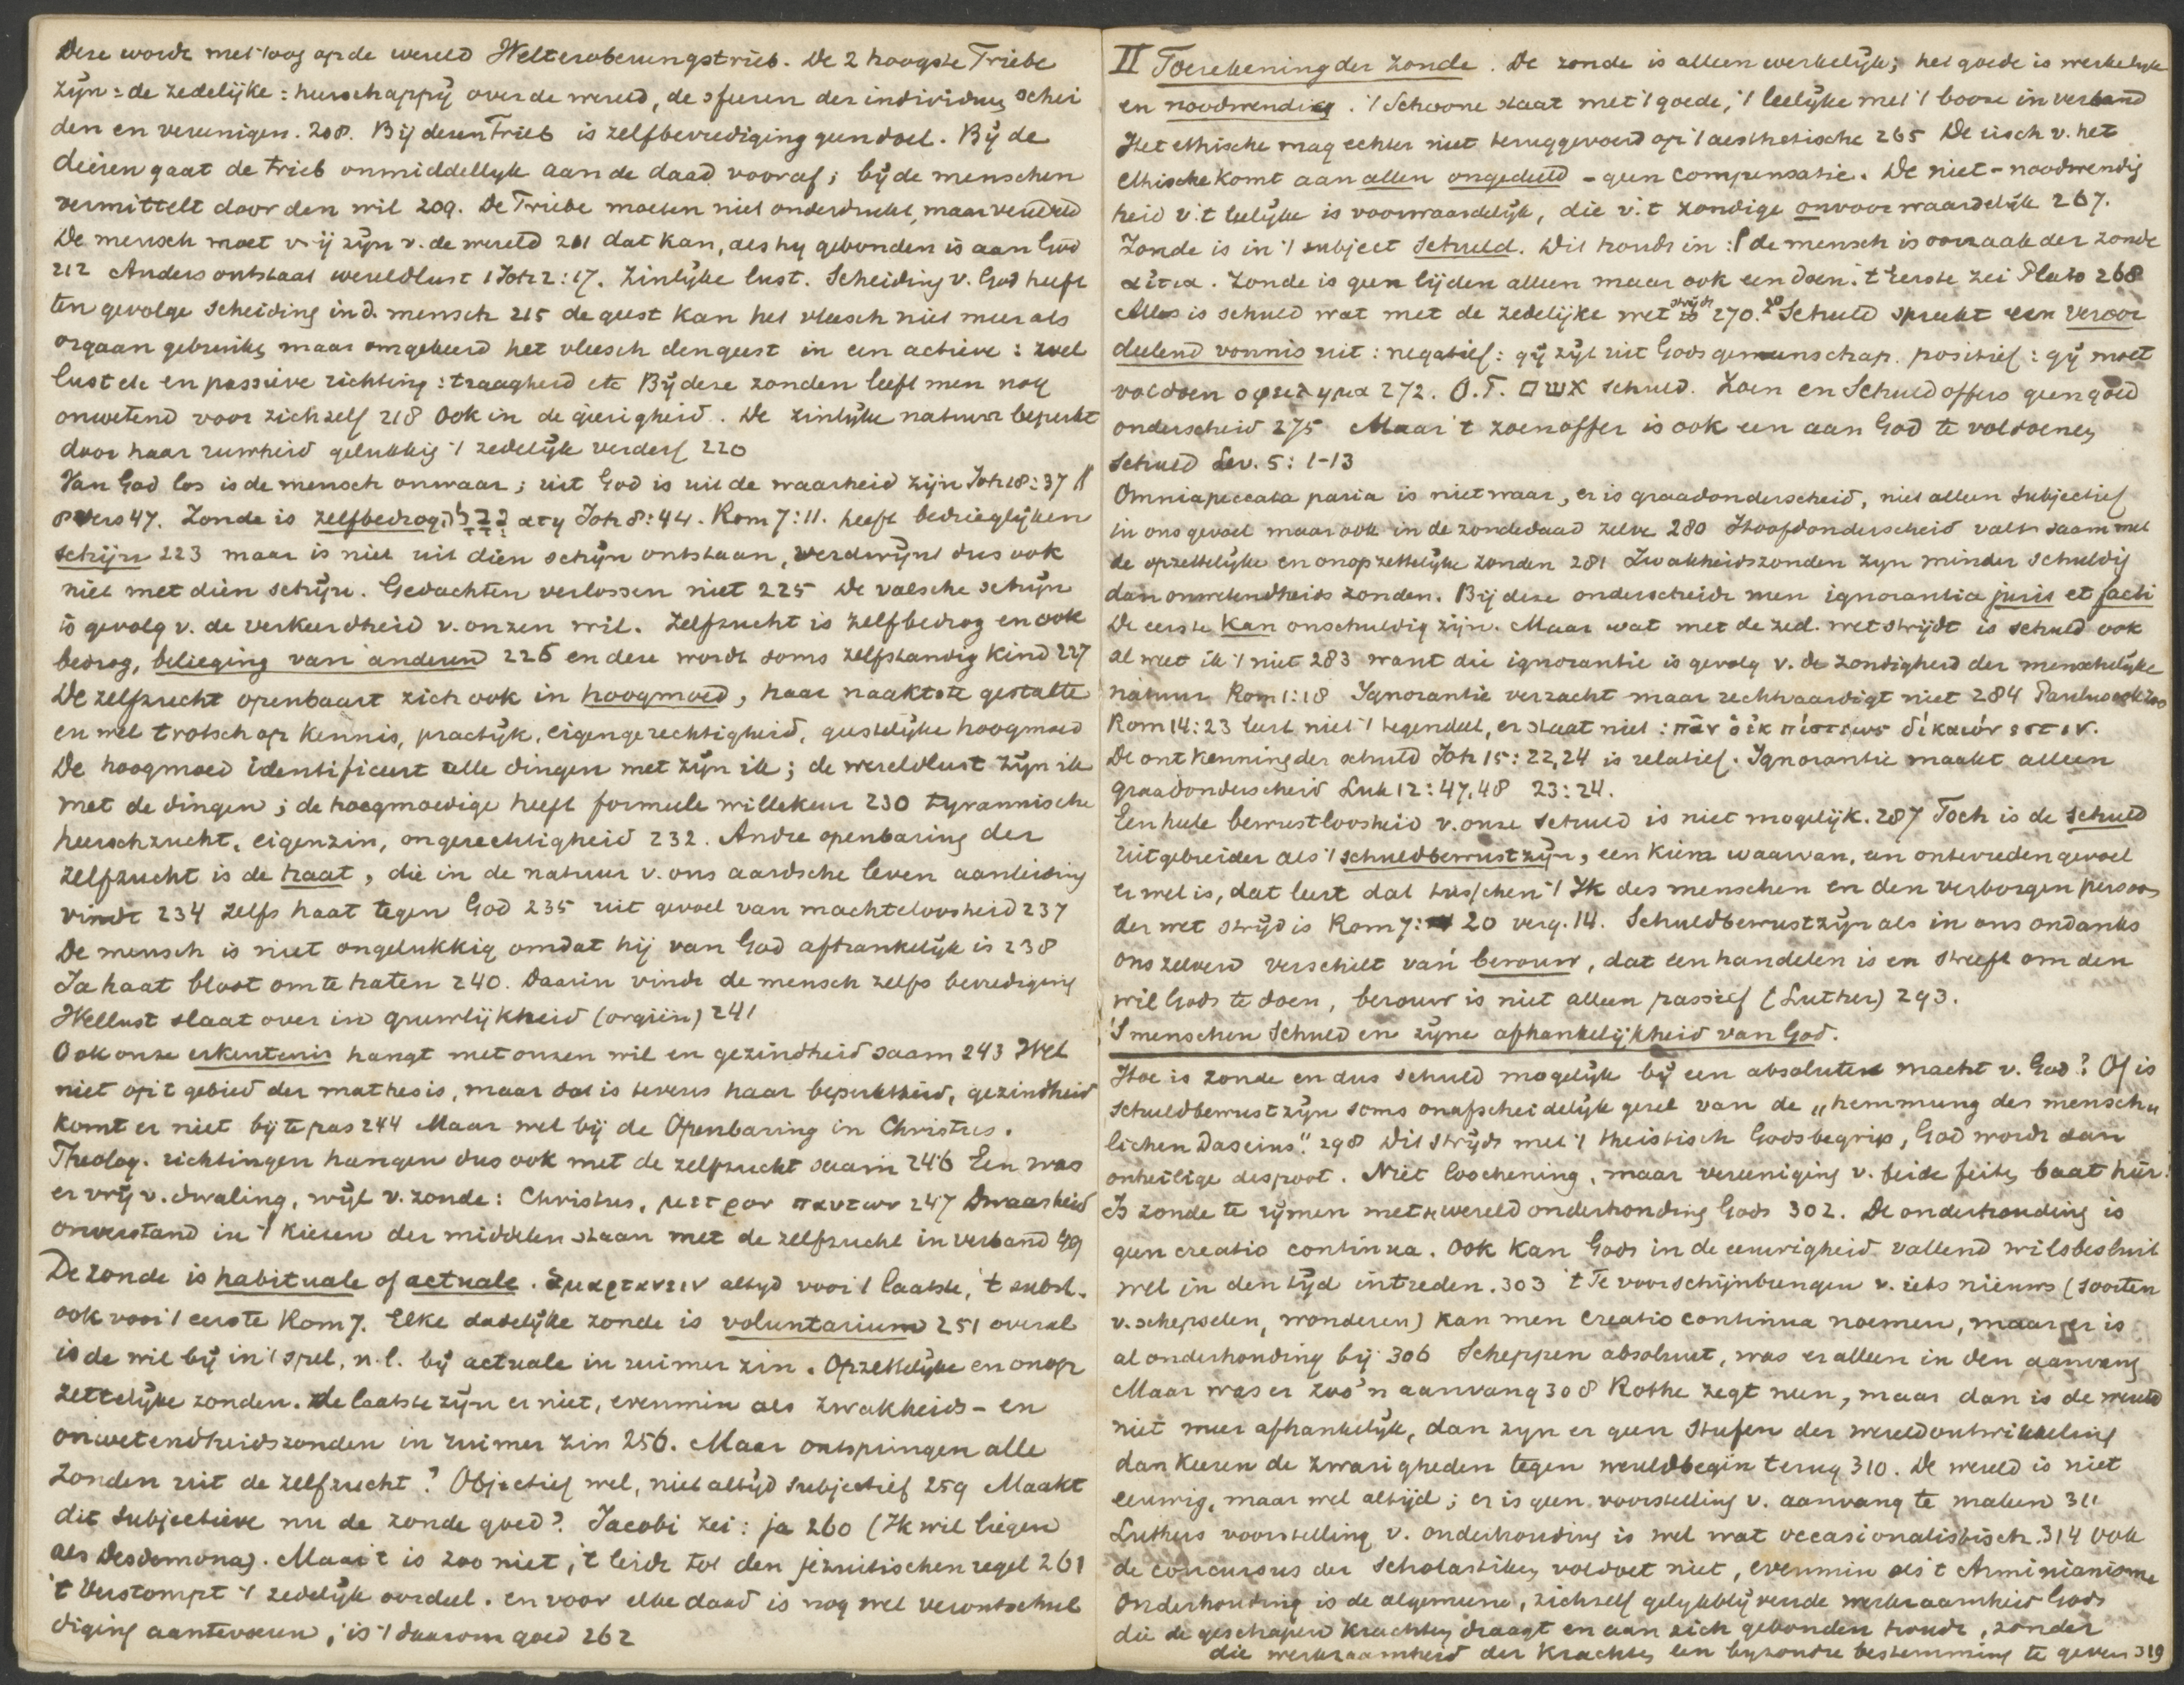 Deze wordt met 't oog op de wereld Welteroberungstrieb. De 2 hoogste Triebe
zijn: de zedelijke: heerschappij over de wereld, de sferen der individuen schei
den en vereenigen. 208. Bij dezen Trieb is zelfbevrediging geen doel. Bij de
dieren gaat de trieb onmiddellyk aan de daad vooraf; bij de menschen
vermittelt door den wil 209. De Triebe moeten niet onderdrukt, maar veredeld
De mensch moet vrij zijn v. de wereld 211 dat kan, als hy gebonden is aan God
212 Anders ontstaat wereldlust 1 Joh 2:17. Zinlijke lust. Scheiding v. God heeft
ten gevolge scheiding in d. mensch 215 de geest kan het vleesch niet meer als
orgaan gebruiken maar omgekeerd het vleesch den geest in een actieve: wel
lust etc en passieve richting: traagheid etc Bij deze zonden leeft men nog
onwetend voor zichzelf 218 Ook in de gierigheid. De zinlijke natuur beperkt
door haar ruwheid gelukkig 't zedelijk verderf 220
Van God los is de mensch onwaar; uit God is uit de waarheid zijn Joh 18:37 //
8 vers 47. Zonde is zelfbedrog, ατη Joh 8:44. Rom 7:11. heeft bedrieglijken
schijn 223 maar is niet uit dien schijn ontstaan, verdwijnt dus ook
niet met dien schijn. Gedachten verlossen niet 225 De valsche schijn
is gevolg v. de verkeerdheid v. onzen wil. Zelfzucht is zelfbedrog en ook
bedrog, belieging van anderen 226 en deze wordt soms zelfstandig kind 227
De zelfzucht openbaart zich ook in hoogmoed, haar naaktste gestalte
en wel trotsch op kennis, practijk, eigengerechtigheid, geestelijke hoogmoed
De hoogmoed identificeert alle dingen met zijn ik; de wereldlust zijn ik
met de dingen; de hoogmoedige heeft formeele willekeur 230 tyrannische
heerschzucht, eigenzin, ongerechtigheid 232. Andre openbaring der
zelfzucht is de haat, die in de natuur v. ons aardsche leven aanleiding
vindt 234 zelfs haat tegen God 235 uit gevoel van machteloosheid 237
De mensch is niet ongelukkig omdat hij van God afhankelijk is 238
Ja haat bloot om te haten 240. Daarin vindt de mensch zelfs bevrediging
Wellust slaat over in gruwlijkheid (orgiën) 241
Ook onze erkentenis hangt met onzen wil en gezindheid saam 243 Wel
niet op 't gebied der mathesis, maar dat is tevens haar beperktheid, gezindheid
komt er niet bij te pas 244 Maar wel bij de Openbaring in Christus.
Theolog. richtingen hangen dus ook met de zelfzucht saam 246 Een was
er vrij v. dwaling, wijl v. zonde: Christus, μετρον παντων 247 Dwaasheid
onverstand in 't kiezen der middelen staan met de zelfzucht in verband 249
De zonde is habituale of actuale. ἁμαρτανειν altyd voor 't laatste, 't subst.
ook voor 't eerste Rom 7. Elke dadelijke zonde is voluntarium 251 overal
is de wil bij in 't spel, n.l. bij actuale in ruimer zin. Opzettelijke en onop
zettelijke zonden. De laatste zijn er niet, evenmin als zwakheids- en
onwetendheidszonden in ruimer zin 256. Maar ontspringen alle
zonden uit de zelfzucht? Objectief wel, niet altijd subjectief 259 Maakt
dit subjectieve nu de zonde goed? Jacobi zei: ja 260 (Ik wil liegen
als Desdemona). Maar 't is zoo niet, 't leidt tot den jezuitischen regel 261
't Verstompt 't zedelijk oordeel. en voor elke daad is nog wel verontschul
diging aantevoeren, is 't daarom goed 262
II Toerekening der zonde. De zonde is alleen werkelijk; het goede is werkelijk
en noodwendig. 't Schoone staat met 't goede, 't leelijke met 't booze in verband
Het ethische mag echter niet teruggevoerd op 't aesthetische 265 De eisch v. het
ethische komt aan allen ongedeeld - geen compensatie. De niet-noodwendig
heid v. 't leelijke is voorwaardelijk, die v. 't zondige onvoorwaardelijk 267.
Zonde is in 't subject schuld. Dit houdt in: 1 de mensch is oorzaak der zonde
αἰτια. Zonde is geen lijden alleen maar ook een doen. 't Eerste zei Plato 268
Alles is schuld wat met de zedelijke wet strijdt is 270. 2° Schuld spreekt een veroor
deelend vonnis uit: negatief: gij zijt uit Gods gemeenschap. positief: gij moet
voldoen οφειλημα 272. O.T. אשם schuld. Zoen en Schuldoffers geen goed
onderscheid 275 Maar 't zoenoffer is ook een aan God te voldoene
schuld Lev. 5:1-13
Omnia peccata paria is niet waar, er is graadonderscheid, niet alleen subjectief
in ons gevoel maar ook in de zondedaad zelve 280 Hoofdonderscheid valt saam met
de opzettelijke en onopzettelijke zonden 281 Zwakheidszonden zyn minder schuldig
dan onwetendheids zonden. Bij deze onderscheidt men ignorantia juris et facti
De eerste kan onschuldig zijn. Maar wat met de zed. wet strijdt is schuld ook
al weet ik 't niet 283 want die ignorantie is gevolg v. de zondigheid der menschelijke
natuur Rom 1:18 Ignorantie verzacht maar rechtvaardigt niet 284 Paulus ook zoo
Rom 14:23 leert niet 't tegendeel, er staat niet: πᾶν ὁ ἐκ πίστεως δίκαιόν εστιν.
De ontkenning der schuld Joh 15:22,24 is relatief. Ignorantie maakt alleen
graadonderscheid Luk 12:47,48 23:24.
Een heele bewustloosheid v. onze schuld is niet mogelijk. 287 Toch is de schuld
uitgebreider als 't schuldbewustzijn, een kiem waarvan, een ontevreden gevoel
er wel is, dat leert dat tusschen 't Ik des menschen en den verborgen persoon
der wet strijd is Rom 7: 20 verg. 14. Schuldbewustzijn als in ons ondanks
ons zelven verschilt van berouw, dat een handelen is en streeft om den
wil Gods te doen, berouw is niet alleen passief (Luther) 293.
'S menschen Schuld en zijne afhankelijkheid van God.
Hoe is zonde en dus schuld mogelijk bij een absolute macht v. God? Of is
schuldbewustzijn soms onafscheidelijk gezel van de „hemmung des mensch„
lichen Daseins". 298 Dit strijdt met 't theistisch Godsbegrip, God wordt dan
onheilige despoot. Niet loochening, maar vereeniging v. beide feiten baat hier.
Is zonde te rijmen met wereldonderhouding Gods 302. De onderhouding is
geen creatio continua. Ook kan Gods in de eeuwigheid vallend wilsbesluit
wel in den tijd intreden. 303 't Te voorschijnbrengen v. iets nieuws (soorten
v. schepselen, wonderen) kan men creatio continua noemen, maar er is
al onderhouding bij 306 Scheppen absoluut, was er alleen in den aanvang
Maar was er zoo'n aanvang 308 Rothe zegt neen, maar dan is de wereld
niet meer afhankelijk, dan zyn er geen Stufen der wereldontwikkeling
dan keeren de zwarigheden tegen wereldbegin terug 310. De wereld is niet
eeuwig, maar wel altijd; er is geen voorstelling v. aanvang te maken 311
Luthers voorstelling v. onderhouding is wel wat occasionalistisch. 314 Ook
de concursus der Scholastiken voldoet niet, evenmin als 't Arminianisme
Onderhouding is de algemeene, zichzelf gelijkblijvende werkzaamheid Gods
die de geschapen krachten draagt en aan zich gebonden houdt, zonder
die werkzaamheid der krachten een byzondre bestemming te geven 319